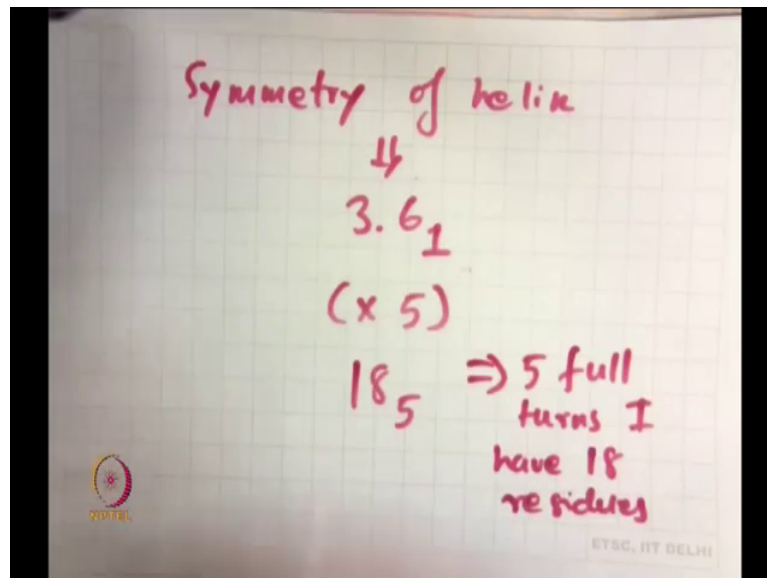 Symmetry of helix
⇓
3.6₁
(x 5)
18₅ ⇒ 5 full
turns I
have 18
residues
NPTEL
ETSC, IIT DELHI